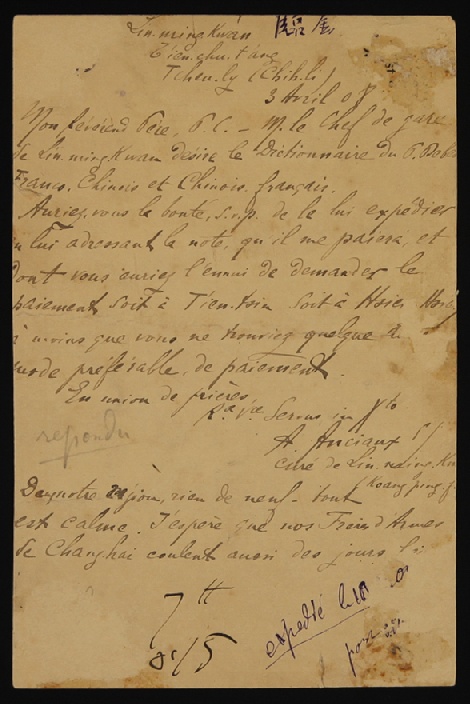 Lin.ming Kwan
Tien.chu.t'ang
Tchen.ly (Chihli)
3 Avril 0
Mon Révérend Père, P.C. – M. le Chef de gare
de Lin.ming Kwan désire le Dictionnaire du P. Deb
Franç. Chinois et Chinois. français.
Auriez.vous la bonté, s.v.p. de le lui expédier
en lui adressant la note, qu'il me paiera, et
dont vous auriez l'ennui de demander le
paiement soit à Tien.tsin soit à Hsien Hsie
à moins que vous ne trouviez quelque
mode préférable, de paiement.
En union de prières
Rae Vae Servus in Xto
A Anciaux
curé de Lin.ming.Kw
Koang ping f
répondu
De notre jour, rien de neuf – tout
est calme. J'espère que nos
de Changhai coulent aussi des jours
7 tt
0\15
expédié le 10